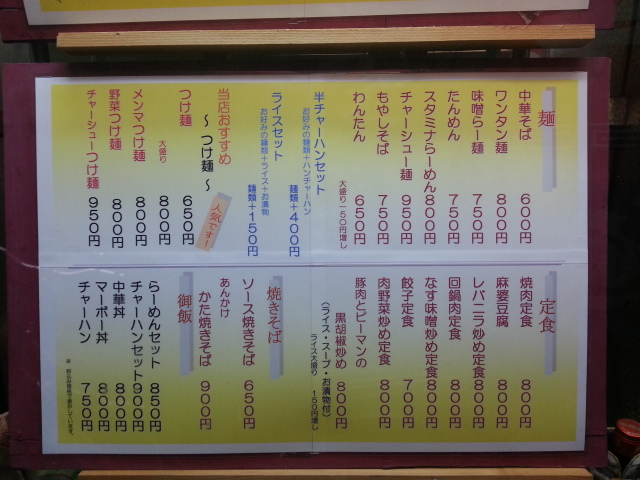 麺
中華そば 600円
ワンタン麺 800円
味噌らー麺 750円
たんめん 750円
スタミナらーめん 800円
チャーシュー麺 950円
もやしそば 750円
わんたん 650円
大盛り一五〇円増し
半チャーハンセット
お好みの麺類+ハンチャーハン
麺類+400円
ライスセット
お好みの麺類+ライス+お漬物
麺類+150円
当店おすすめ
～つけ麺～
人気です!
つけ麺 650円
大盛り 800円
メンマつけ麺 800円
野菜つけ麺 800円
チャーシューつけ麺 950円
定食
焼肉定食 800円
麻婆豆腐 800円
レバニラ炒め定食 800円
回鍋肉定食 800円
なす味噌炒め定食 800円
餃子定食 700円
肉野菜炒め定食 800円
豚肉とピーマンの
黒胡椒炒め 800円
(ライス・スープ・お漬物付)
ライス大盛り 150円増し
焼きそば
ソース焼きそば 650円
あんかけ
かた焼きそば 900円
御飯
らーめんセット 850円
チャーハンセット 900円
中華丼 800円
マーボー丼 800円
チャーハン 750円